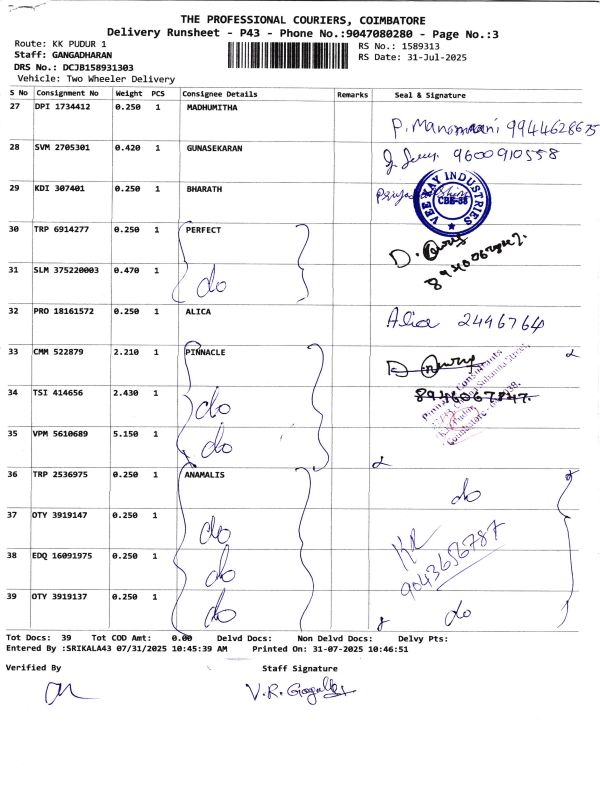 THE PROFESSIONAL COURIERS, COIMBATORE
Delivery Runsheet - P43 - Phone No.:9047080280 - Page No.:3
Route: KK PUDUR 1
Staff: GANGADHARAN
DRS No.: DCJB158931303
Vehicle: Two Wheeler Delivery
RS No.: 1589313
RS Date: 31-Jul-2025
S No Consignment No Weight PCS Consignee Details Remarks Seal & Signature
27 DPI 1734412 0.250 1 MADHUMITHA
P. Manonmani 9944628675
28 SVM 2705301 0.420 1 GUNASEKARAN
9600910558
29 KDI 307401 0.250 1 BHARATH
VEE KAY INDUSTRIES
CBE-38
30 TRP 6914277 0.250 1 PERFECT
D.
31 SLM 375220003 0.470 1 do
32 PRO 18161572 0.250 1 ALICA Alice 2496764
33 CMM 522879 2.210 1 PINNACLE
34 TSI 414656 2.430 1 do
Pinnacle Consultants
35 VPM 5610689 5.150 1 do
36 TRP 2536975 0.250 1 ANAMALIS do
37 OTY 3919147 0.250 1 do
38 EDQ 16091975 0.250 1 do
9043656787
39 OTY 3919137 0.250 1 do do
Tot Docs: 39 Tot COD Amt: 0.00 Delvd Docs: Non Delvd Docs: Delvy Pts:
Entered By :SRIKALA43 07/31/2025 10:45:39 AM Printed On: 31-07-2025 10:46:51
Verified By Staff Signature
V.R.